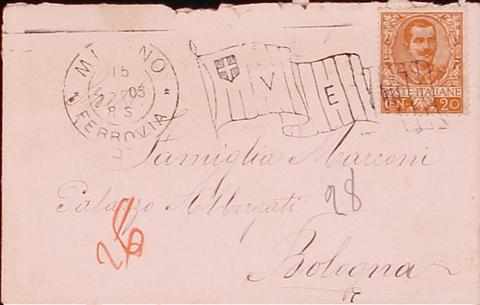 MILANO
15
05
8 S
FERROVIA
V E
POSTE ITALIANE
CEN. 20
Famiglia Marconi
Palazzo Albergati
28
28
Bologna